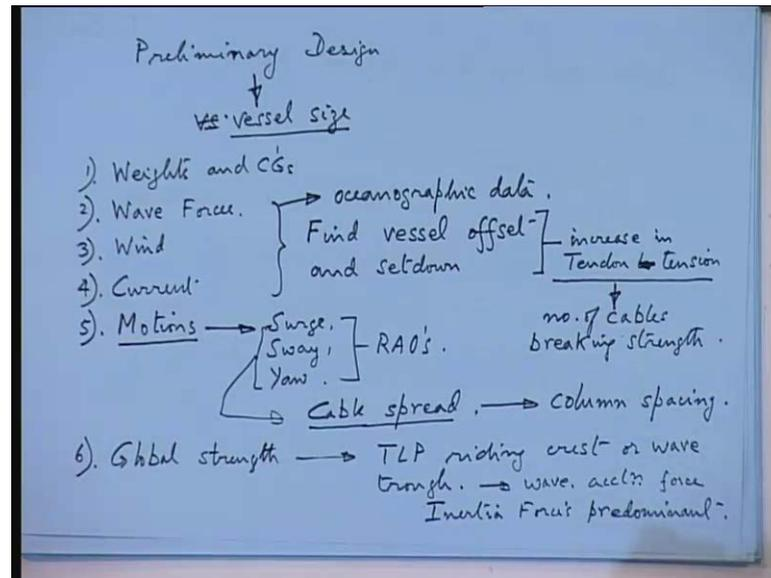 Preliminary Design
vessel size
1). Weights and CGs
2). Wave Force. → oceanographic data.
3). Wind
4). Current
Find vessel offset
and setdown
increase in
Tendon tension
no. of cables
breaking strength.
5). Motions → Surge,
Sway,
Yaw.
RAO's.
Cable spread. → column spacing.
6). Global strength → TLP riding crest or wave
trough. → wave. accln force
Inertia Force's predominant.